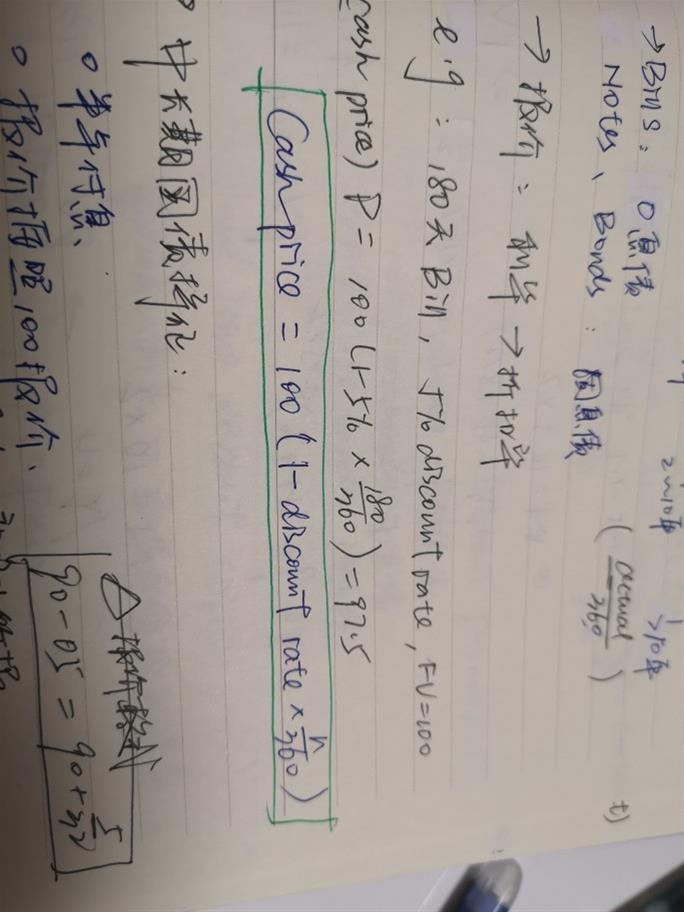 2~10年 >10年
→Bills: 0息债
Notes、Bonds: 附息债
→报价: 利率→折扣率 (actual/360)
e.g: 180天 Bill, 5% discount rate, FV=100
(cash price) P = 100(1-5% × 180/360) = 97.5
Cash price = 100(1-discount rate × n/360)
中长期国债特征:
○ 半年付息
○ 报价按照 100报价、
△报价格式
90-05 = 90+5/32